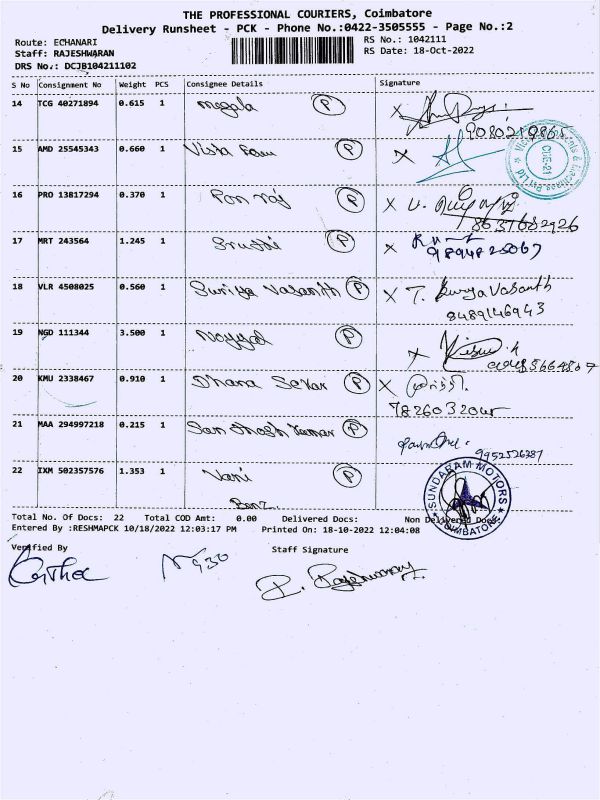 THE PROFESSIONAL COURIERS, Coimbatore
Delivery Runsheet - PCK - Phone No.:0422-3505555 - Page No.:2
Route: ECHANARI
RS No.: 1042111
Staff: RAJESHWARAN
RS Date: 18-Oct-2022
DRS No.: DCJB104211102
S No Consignment No Weight PCS Consignee Details Signature
14 TCG 40271894 0.615 1 megala P X
9080219865
15 AMD 25545343 0.660 1 Vista P X
16 PRO 13817294 0.370 1 Pon raj P X
8637682926
17 MRT 243564 1.245 1 Srushi P X
9894825067
18 VLR 4508025 0.560 1 Suriya Vasanth P X T. Surya Vasanth
8489146943
19 NGD 111344 3.500 1 P X
20 KMU 2338467 0.910 1 Dhana Sekar P X
21 MAA 294997218 0.215 1 Santhosh Kumar P
9952526387
22 IXM 502357576 1.353 1 Vani P
Benz
SUNDARAM MOTORS
COIMBATORE
Total No. Of Docs: 22 Total COD Amt: 0.00 Delivered Docs: Non Delivered Docs
Entered By :RESHMAPCK 10/18/2022 12:03:17 PM Printed On: 18-10-2022 12:04:08
Verified By Staff Signature